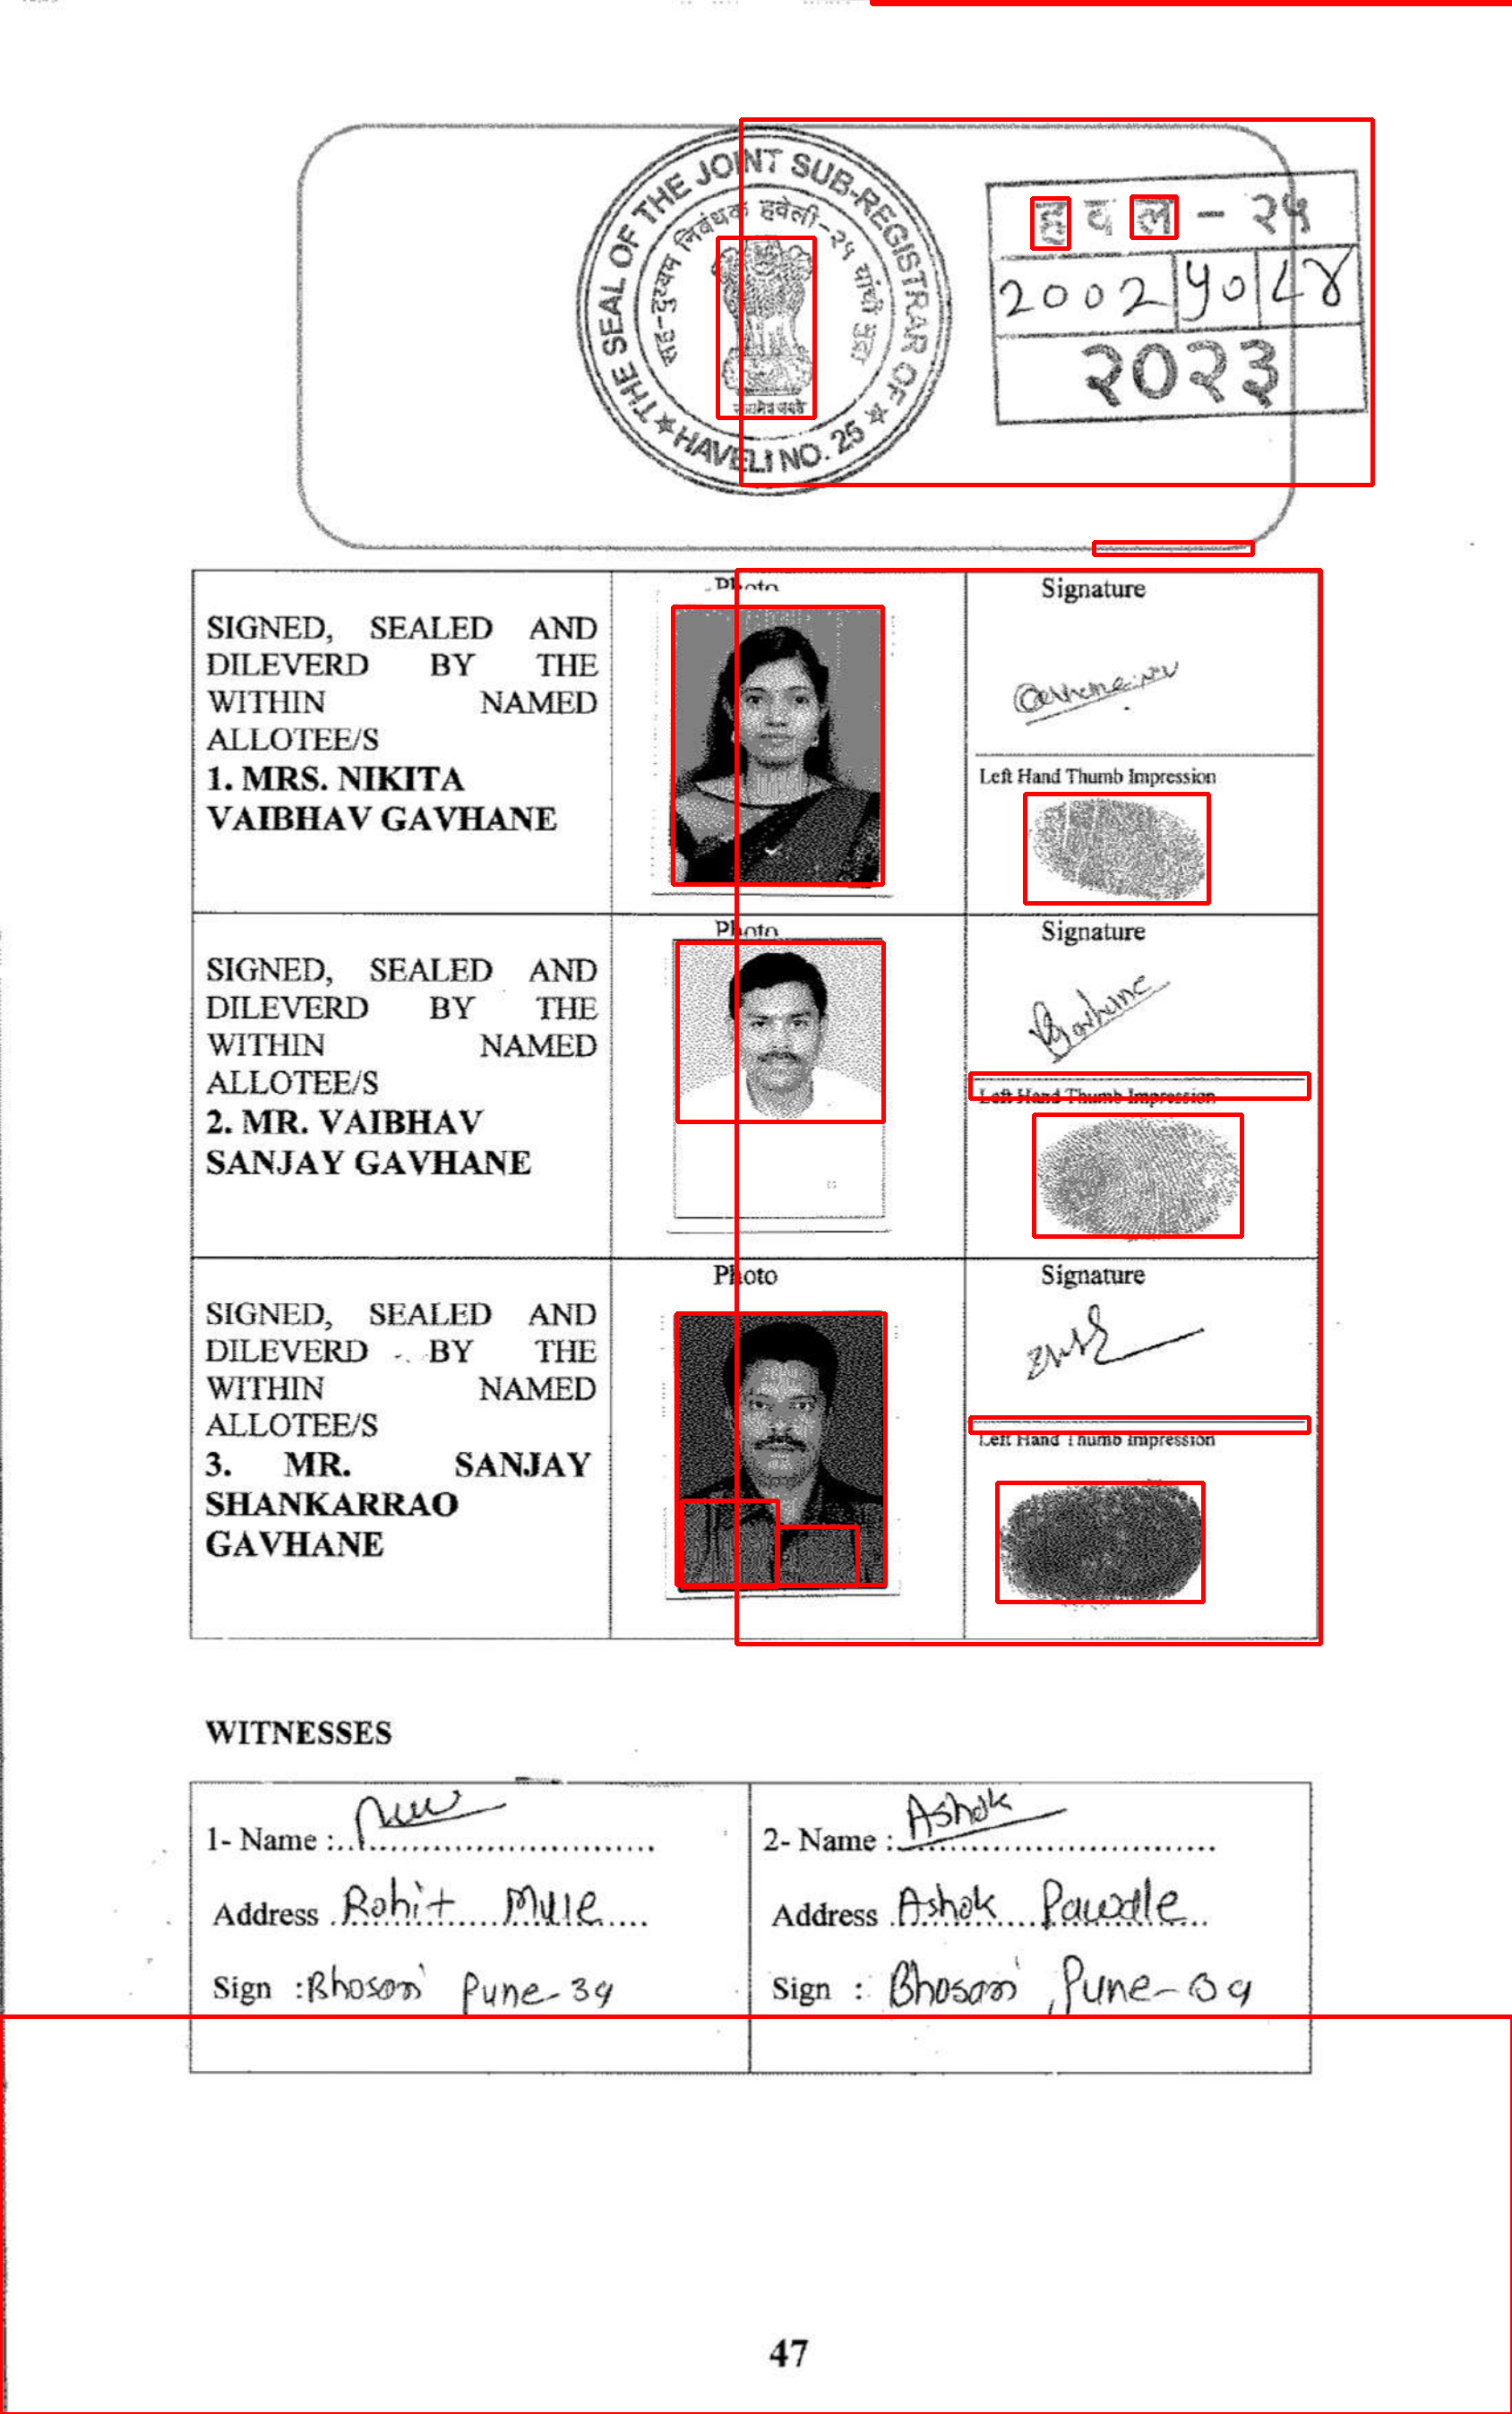 THE SEAL OF THE JOINT SUB-REGISTRAR OF
HAVELI NO. 25
सह-दुय्यम निबंधक हवेली-२५ यांची मुद्रा
हवल - २५
2002 ५० ८४
२०२३
SIGNED, SEALED AND
DILEVERD BY THE
WITHIN NAMED
ALLOTEE/S
1. MRS. NIKITA
VAIBHAV GAVHANE
Photo
Signature
Left Hand Thumb Impression
SIGNED, SEALED AND
DILEVERD BY THE
WITHIN NAMED
ALLOTEE/S
2. MR. VAIBHAV
SANJAY GAVHANE
Photo
Signature
Left Hand Thumb Impression
SIGNED, SEALED AND
DILEVERD BY THE
WITHIN NAMED
ALLOTEE/S
3. MR. SANJAY
SHANKARRAO
GAVHANE
Photo
Signature
Left Hand Thumb Impression
WITNESSES
1- Name :
Address Rohit Mule
Sign : Bhosari Pune-39
2- Name : Ashok
Address Ashok Pawale
Sign : Bhosari, Pune-39
47